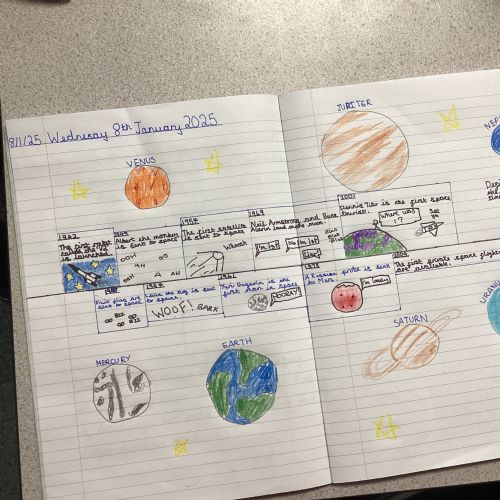 8/1/25 Wednesday 8th January 2025
JUPITER
NEP
VENUS
1942
The first rocket
is launched
1949
Albert the monkey
is sent to space
AH
AH
1957
The first satellite
is sent to space
Whoosh
1969
Neil Armstrong and Buzz
Aldrin land on the moon
I'm 1st
No I'm 1st
2001
Dennis Tito is the first space
tourist.
What was
!?
Fruit flies are
sent to space
BZZ
Laika the dog is sent
to space.
WOOF! BARK
1961
Yuri Gagarin is the
first man in space
HOORAY!
A Russian probe is sent
to Mars
I'm lonely
The first private space
are available.
MERCURY
EARTH
SATURN
URANU